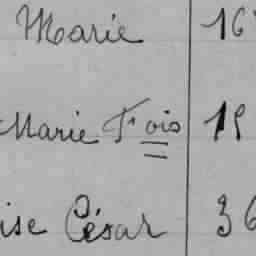 Marie 16
Marie Fois 19
ise César 36